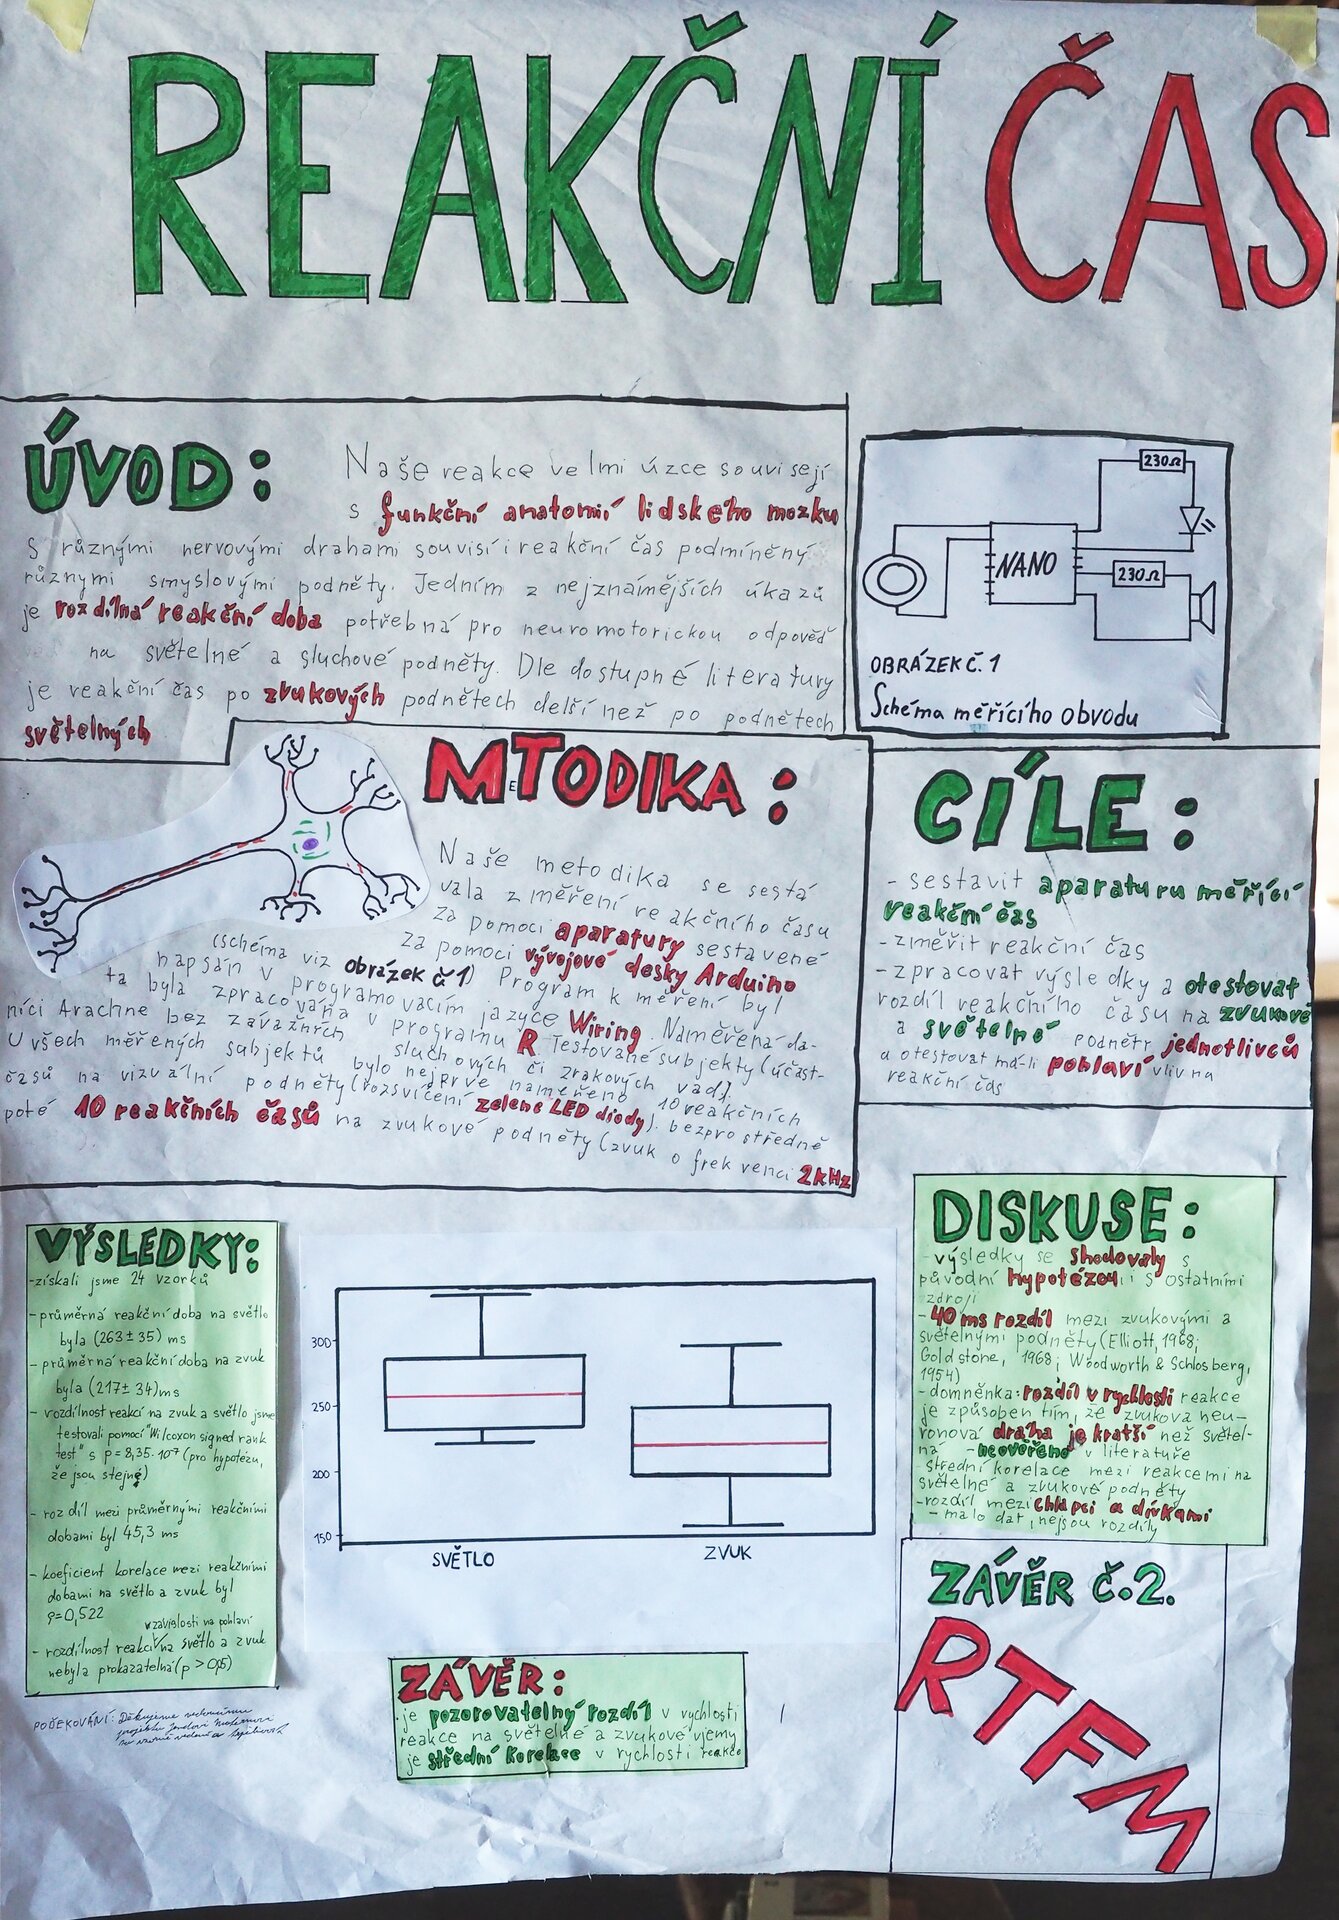 REAKČNÍ ČAS
ÚVOD:
Naše reakce velmi úzce souvisejí
s funkční anatomií lidského mozku
S různými nervovými drahami souvisí i reakční čas podmíněný
různymi smyslovými podněty. Jedním z nejznámějších úkazů
je rozdílná reakční doba potřebná pro neuromotorickou odpověď
na světelné a sluchové podněty. Dle dostupné literatury
je reakční čas po zvukových podnětech delší než po podnětech
světelných
230Ω
NANO
230Ω
OBRÁZEK Č. 1
Schéma měřícího obvodu
METODIKA:
Naše metodika se sestá
vala z měření reakčního času
za pomoci aparatury sestavené
za pomoci vývojové desky Arduino
(schéma viz obrázek č 1) Program k měření byl
napsán v programovacím jazyce Wiring. Naměřená da-
ta byla zpracována v programu R Testované subjekty (účast-
níci Arachne bez závažných sluchových či zrakových vad).
U všech měřených subjektů bylo nejprve naměřeno 10 reakčních
časů na vizuální podněty (rozsvícení zelené LED diody). bezprostředně
poté 10 reakčních časů na zvukové podněty (zvuk o frekvenci 2kHz
CÍLE:
- sestavit aparaturu měřící
reakční čas
- změřit reakční čas
- zpracovat výsledky a otestovat
rozdíl reakčního času na zvukové
a světelné podněty jednotlivců
a otestovat má-li pohlaví vliv na
reakční čas
VÝSLEDKY:
- získali jsme 24 vzorků
- průměrná reakční doba na světlo
byla (263 ± 35) ms
- průměrná reakční doba na zvuk
byla (217 ± 34) ms
- rozdílnost reakcí na zvuk a světlo jsme
testovali pomocí "Wilcoxon signed rank
test" s p = 8,35·10⁻⁷ (pro hypotézu,
že jsou stejné)
- rozdíl mezi průměrnými reakčními
dobami byl 45,3 ms
- koeficient korelace mezi reakčními
dobami na světlo a zvuk byl
ρ=0,522
v závislosti na pohlaví
- rozdílnost reakcí na světlo a zvuk
nebyla prokazatelná (p > 0,05)
PODĚKOVÁNÍ: Děkujeme vedoucímu
projektu
300
250
200
150
SVĚTLO
ZVUK
DISKUSE:
- výsledky se shodovaly s
původní hypotézou i s ostatními
zdroji
- 40 ms rozdíl mezi zvukovými a
světelnými podněty (Elliott, 1968;
Goldstone, 1968; Woodworth & Schlosberg,
1954)
- domněnka: rozdíl v rychlosti reakce
je způsoben tím, že zvuková neu-
ronová dráha je kratší než světel-
ná - neověřeno v literatuře
- střední korelace mezi reakcemi na
světelné a zvukové podněty
- rozdíl mezi chlapci a dívkami
- málo dat, nejsou rozdíly
ZÁVĚR:
- je pozorovatelný rozdíl v rychlosti
reakce na světelné a zvukové vjemy
- je střední korelace v rychlosti reakce
ZÁVĚR Č.2.
RTFM